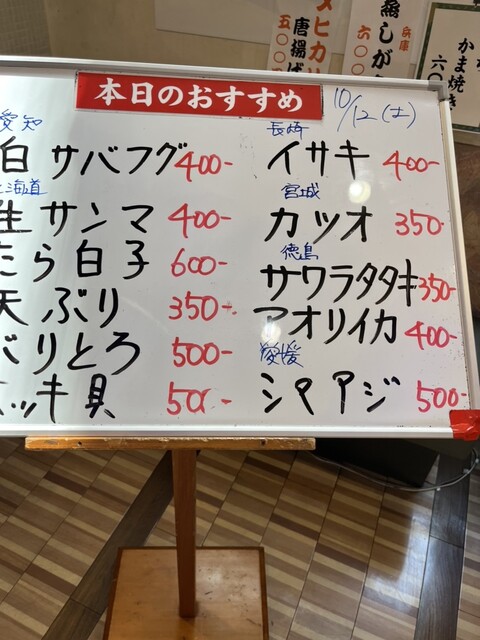 本日のおすすめ
10/12(土)
愛知
白サバフグ 400-
北海道
生サンマ 400-
たら白子 600-
天ぶり 350-
ぶりとろ 500-
ホッキ貝 500-
長崎
イサキ 400-
宮城
カツオ 350-
徳島
サワラタタキ 350-
アオリイカ 400-
愛媛
シマアジ 500-
メヒカリ
唐揚げ
五〇〇
兵庫
蒸しが
六〇〇
かま焼き
六〇